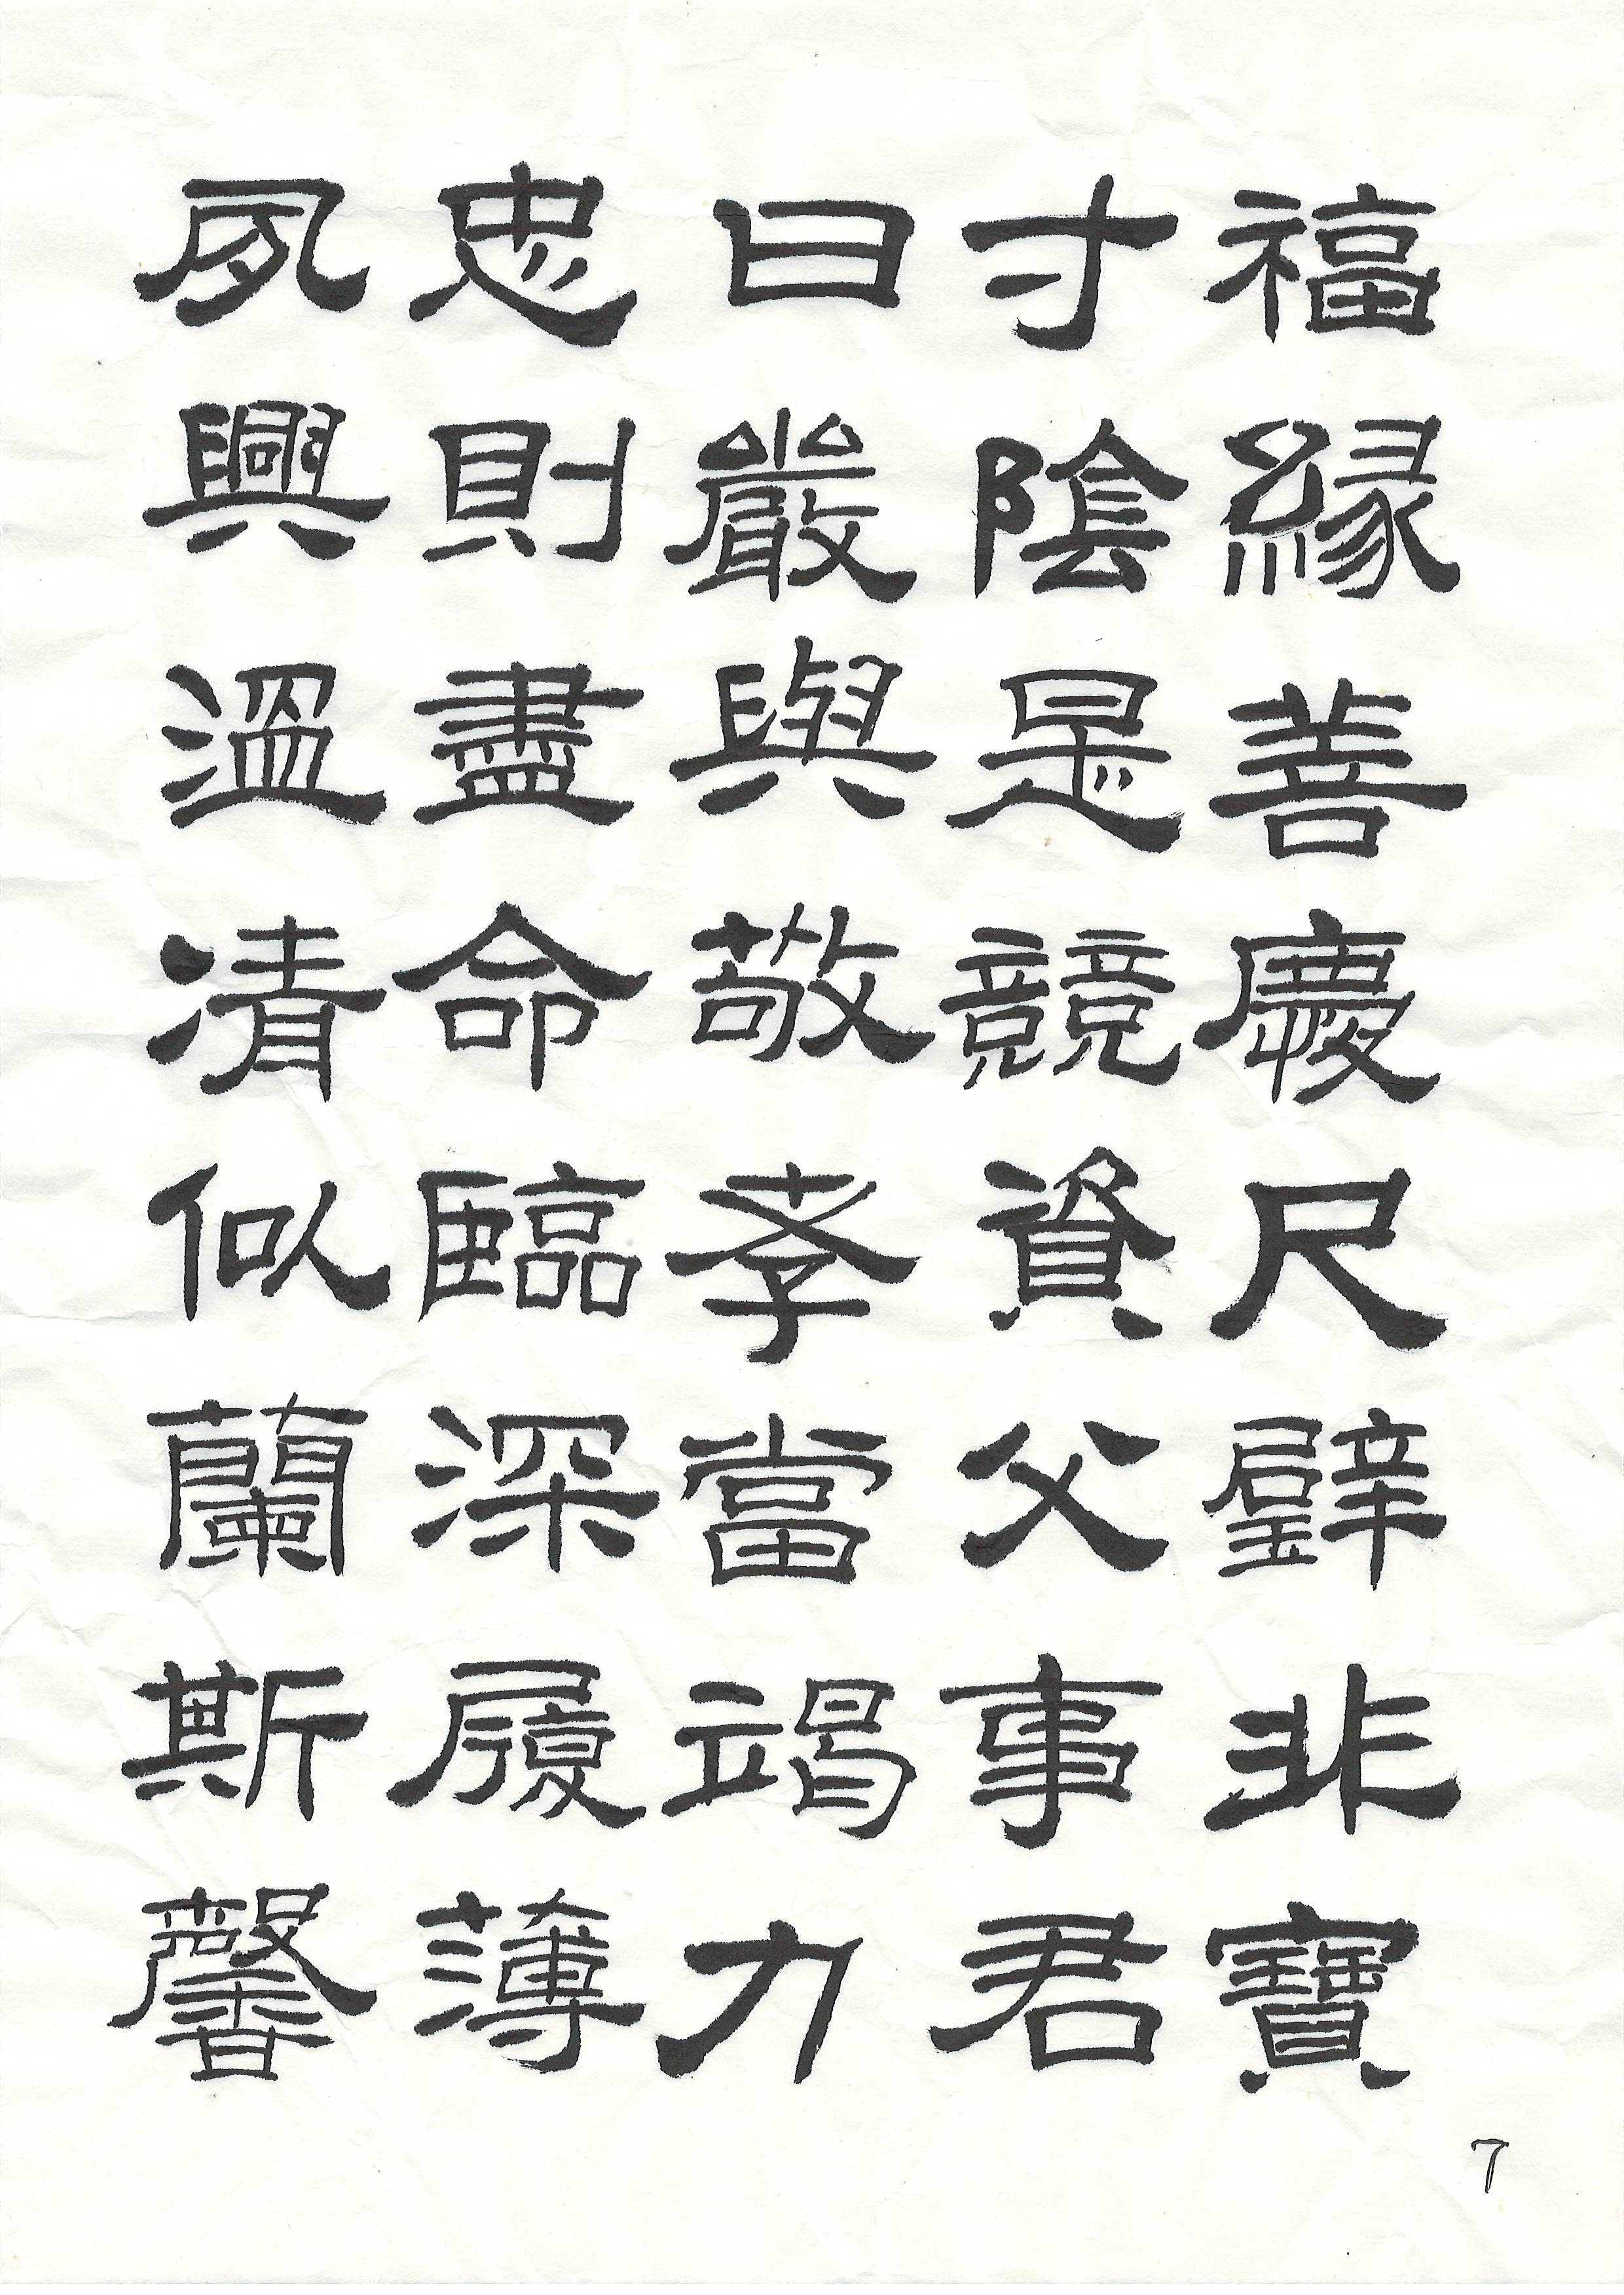 福緣善慶尺璧非寶
寸陰是競資父事君
曰嚴與敬孝當竭力
忠則盡命臨深履薄
夙興溫凊似蘭斯馨
7